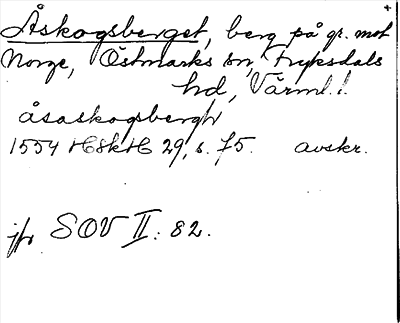 Åskogsberget, berg på gr. mot
Norge, Östmarks sn, Fryksdals
hd, Värml. l.
åsaskogsbergh
1554 HSkH 29, s. 75. avskr.
jfr SOV II: 82.